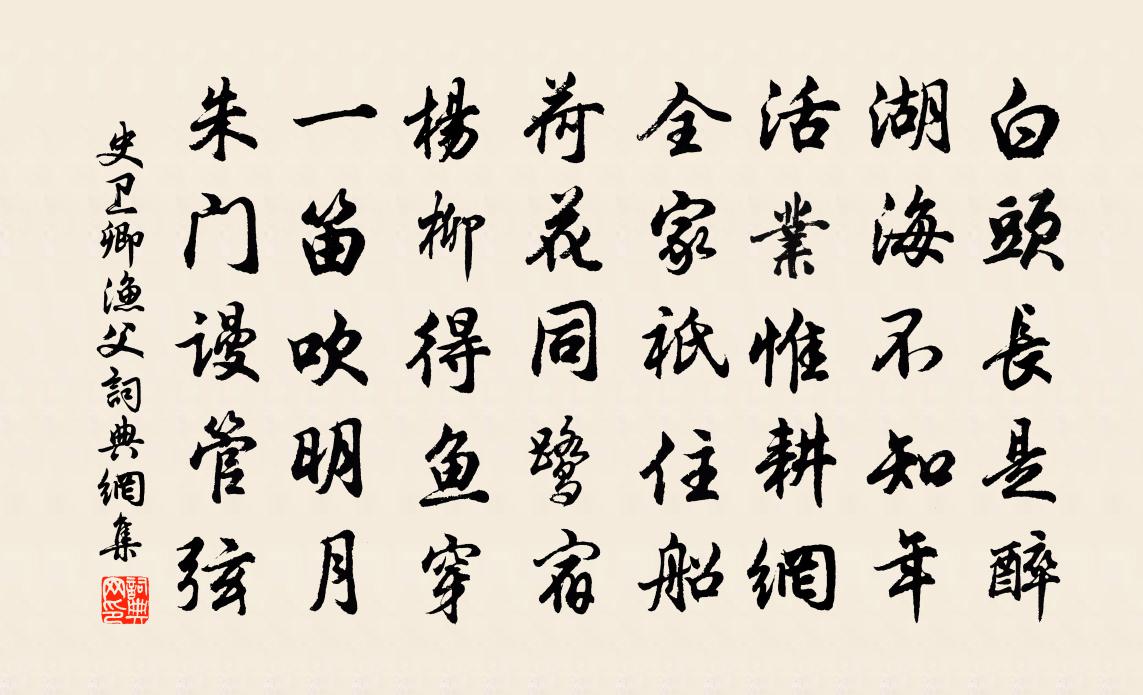 白頭長是醉
湖海不知年
活業惟耕網
全家祇住船
荷花同鷺宿
楊柳得魚穿
一笛吹明月
朱门谩管弦
史卫卿漁父詞典網集
詞典網印